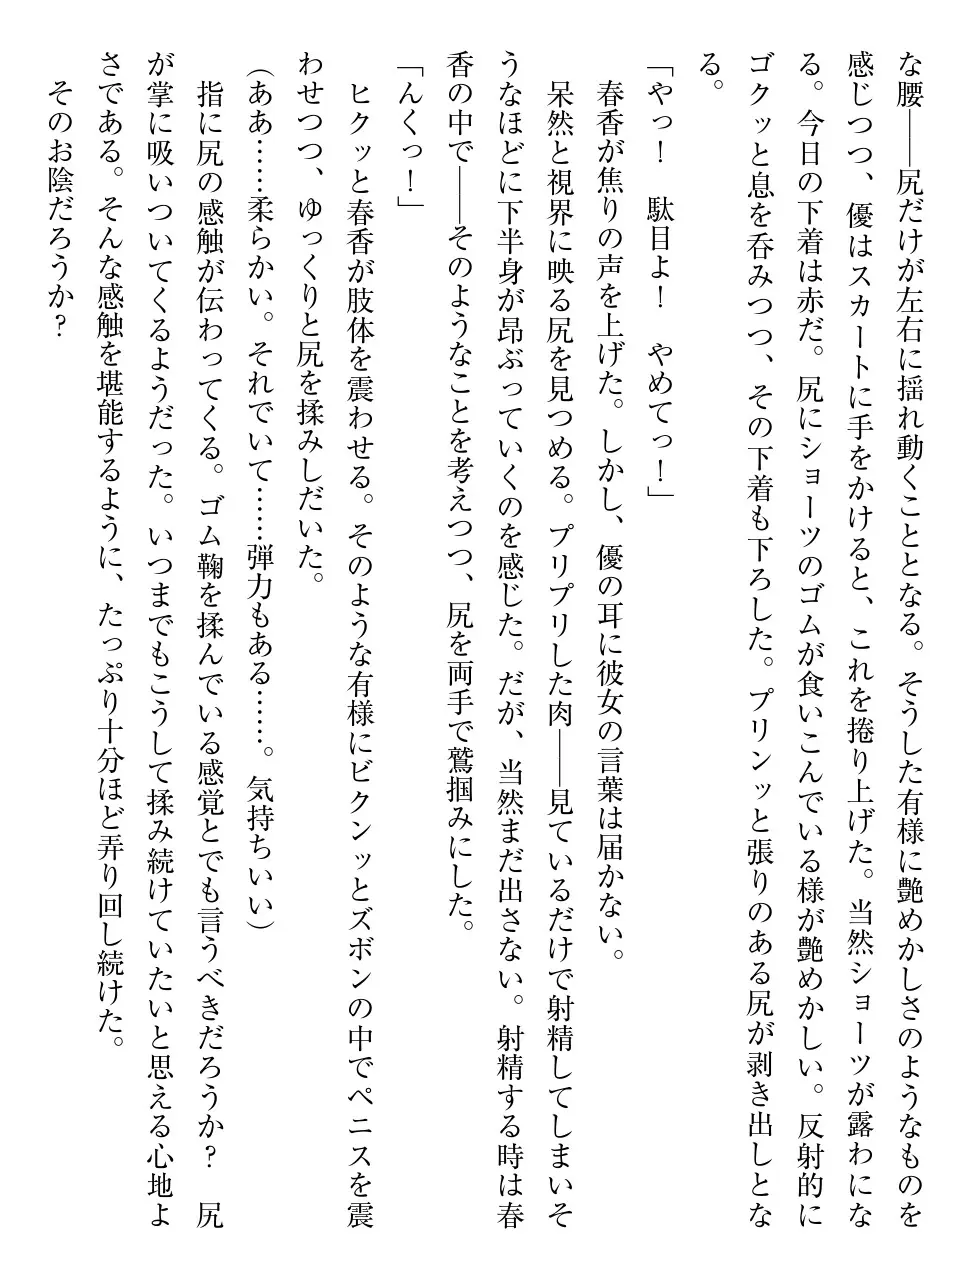 な腰――尻だけが左右に揺れ動くこととなる。そうした有様に艶めかしさのようなものを
感じつつ、優はスカートに手をかけると、これを捲り上げた。当然ショーツが露わにな
る。今日の下着は赤だ。尻にショーツのゴムが食いこんでいる様が艶めかしい。反射的に
ゴクッと息を呑みつつ、その下着も下ろした。プリンッと張りのある尻が剥き出しとな
る。
「やっ！　駄目よ！　やめてっ！」
　春香が焦りの声を上げた。しかし、優の耳に彼女の言葉は届かない。
　呆然と視界に映る尻を見つめる。プリプリした肉――見ているだけで射精してしまいそ
うなほどに下半身が昂ぶっていくのを感じた。だが、当然まだ出さない。射精する時は春
香の中で――そのようなことを考えつつ、尻を両手で鷲掴みにした。
「んくっ！」
　ヒクッと春香が肢体を震わせる。そのような有様にビクンッとズボンの中でペニスを震
わせつつ、ゆっくりと尻を揉みしだいた。
（ああ……柔らかい。それでいて……弾力もある……。気持ちいい）
　指に尻の感触が伝わってくる。ゴム鞠を揉んでいる感覚とでも言うべきだろうか？　尻
が掌に吸いついてくるようだった。いつまでもこうして揉み続けていたいと思える心地よ
さである。そんな感触を堪能するように、たっぷり十分ほど弄り回し続けた。
　そのお陰だろうか？